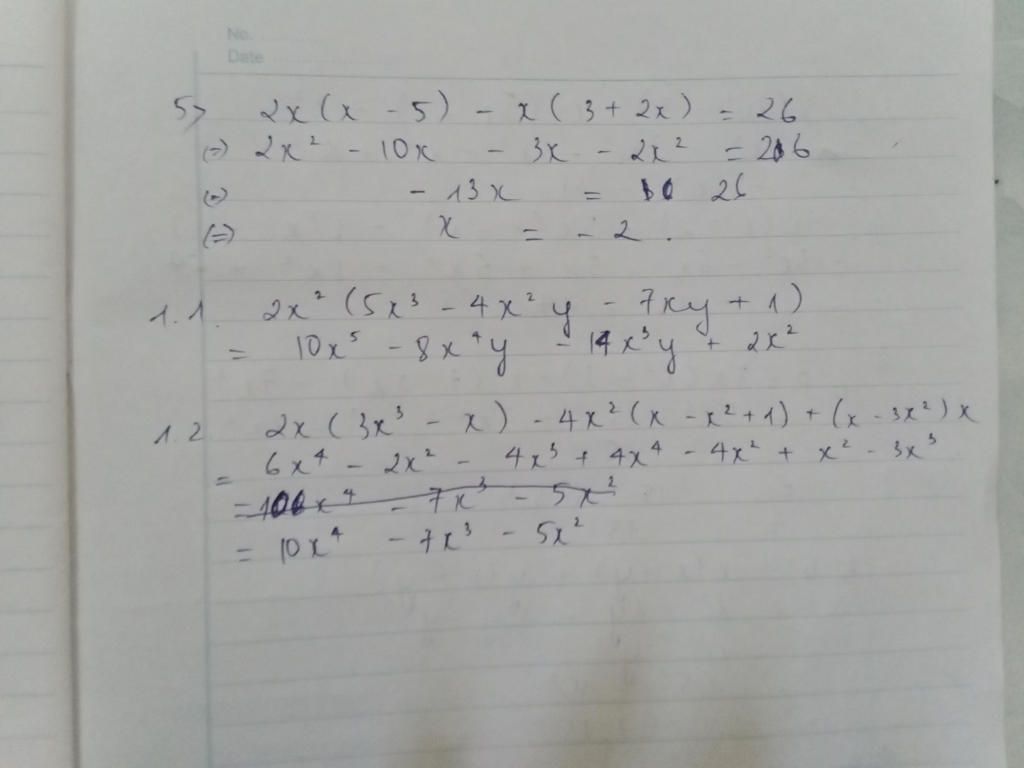 No.
Date
5> 2x(x - 5) - x(3 + 2x) = 26
(=) 2x² - 10x - 3x - 2x² = 26
(=) - 13x = 26
(=) x = - 2.
1.1. 2x² (5x³ - 4x²y - 7xy + 1)
= 10x⁵ - 8x⁴y - 14x³y + 2x²
1.2 2x(3x³ - x) - 4x²(x - x² + 1) + (x - 3x²)x
= 6x⁴ - 2x² - 4x³ + 4x⁴ - 4x² + x² - 3x³
= 10x⁴ - 7x³ - 5x²
= 10x⁴ - 7x³ - 5x²